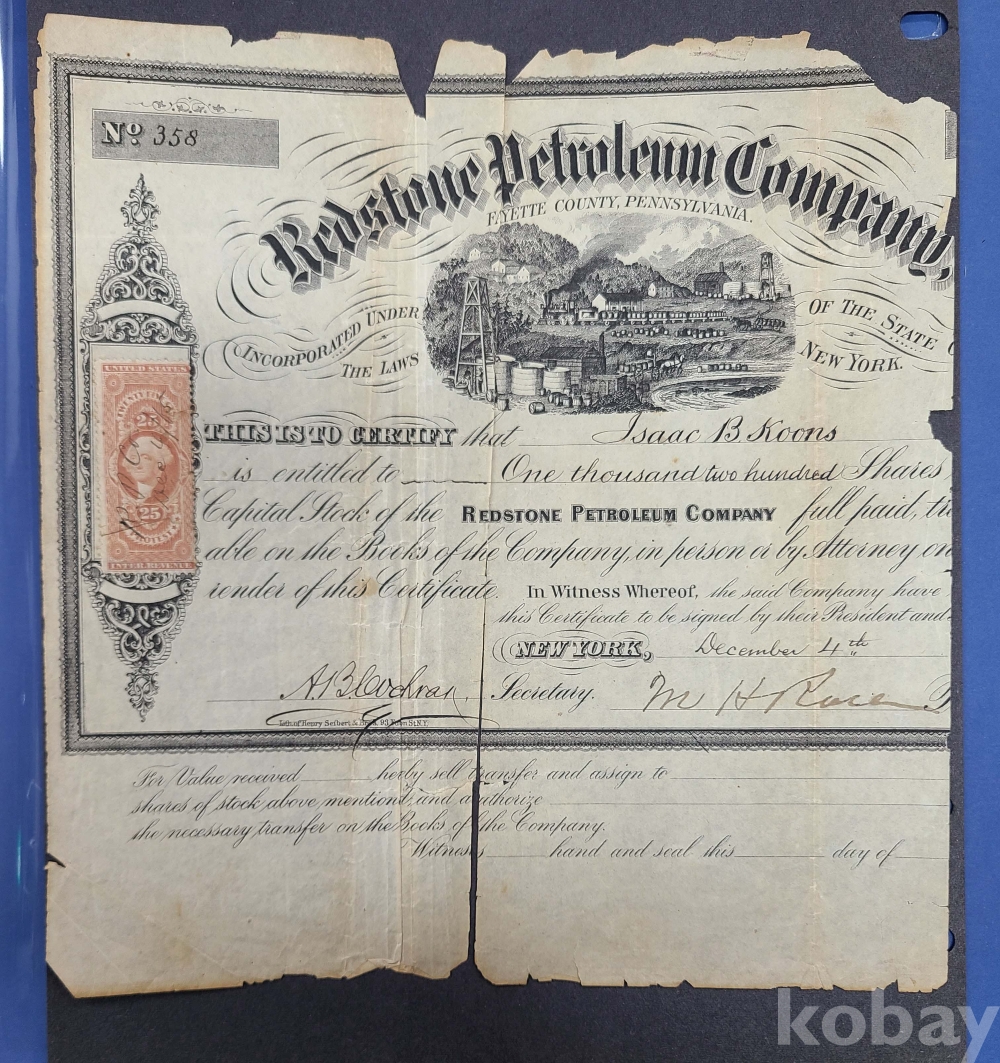 No. 358
Redstone Petroleum Company,
FAYETTE COUNTY, PENNSYLVANIA.
INCORPORATED UNDER THE LAWS
OF THE STATE
NEW YORK.
UNITED STATES
25
25
PROTEST
INTER. REVENUE
THIS IS TO CERTIFY that Isaac B Koons
is entitled to One thousand two hundred Shares
Capital Stock of the REDSTONE PETROLEUM COMPANY full paid, tr
able on the Books of the Company, in person or by Attorney on
render of this Certificate. In Witness Whereof, the said Company have
this Certificate to be signed by their President and
NEW YORK, December 4th
A B Cochran, Secretary. M H
Lith. of Henry Seibert & Bros. 93 St. N.Y.
For Value received hereby sell transfer and assign to
shares of stock above mentiond, and authorize
the necessary transfer on the Books of the Company.
Witness hand and seal this day of
kobay